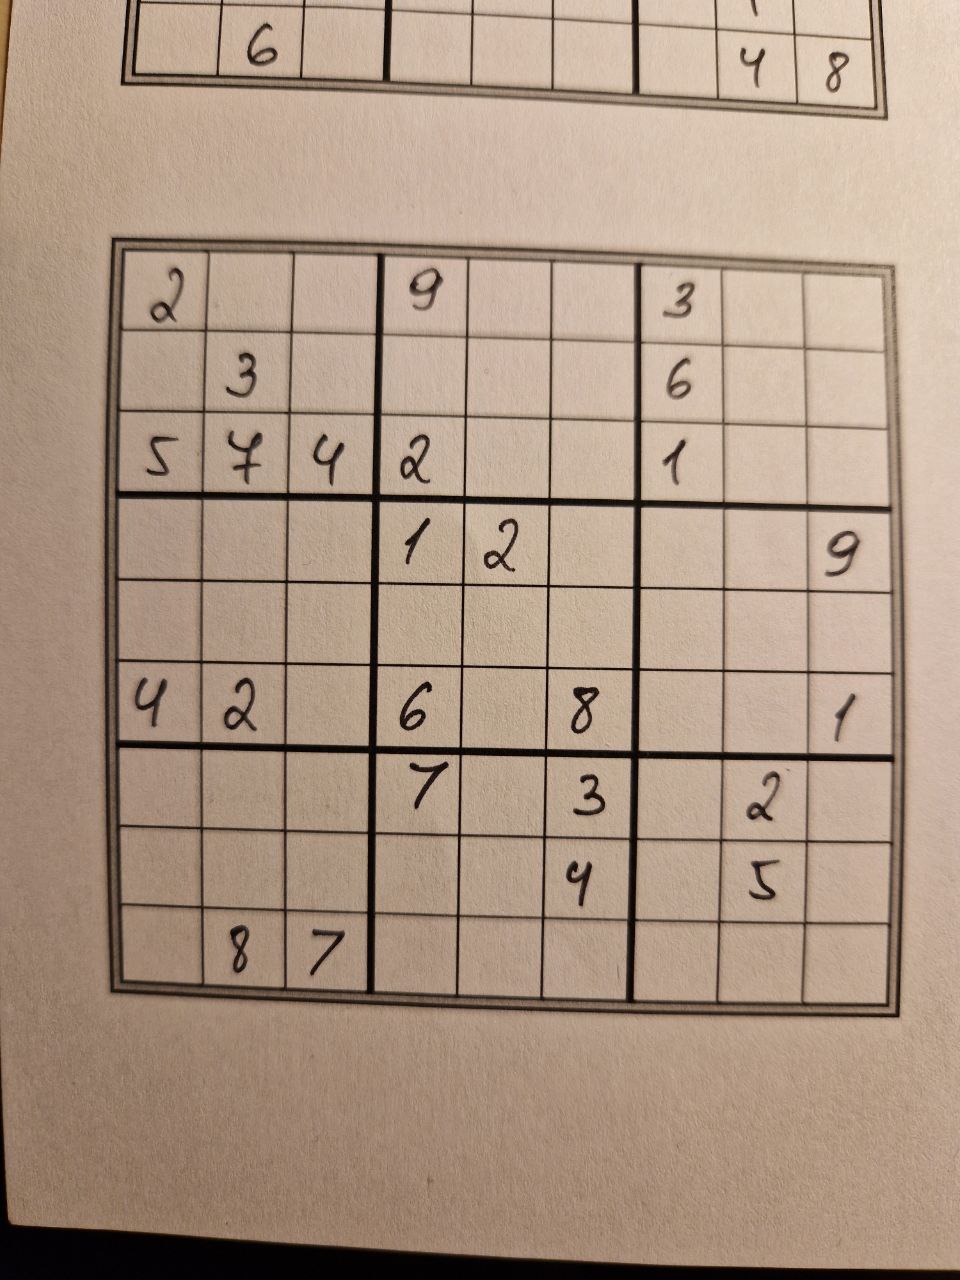 6 4 8
2 9 3
3 6
5 7 4 2 1
1 2 9
4 2 6 8 1
7 3 2
4 5
8 7